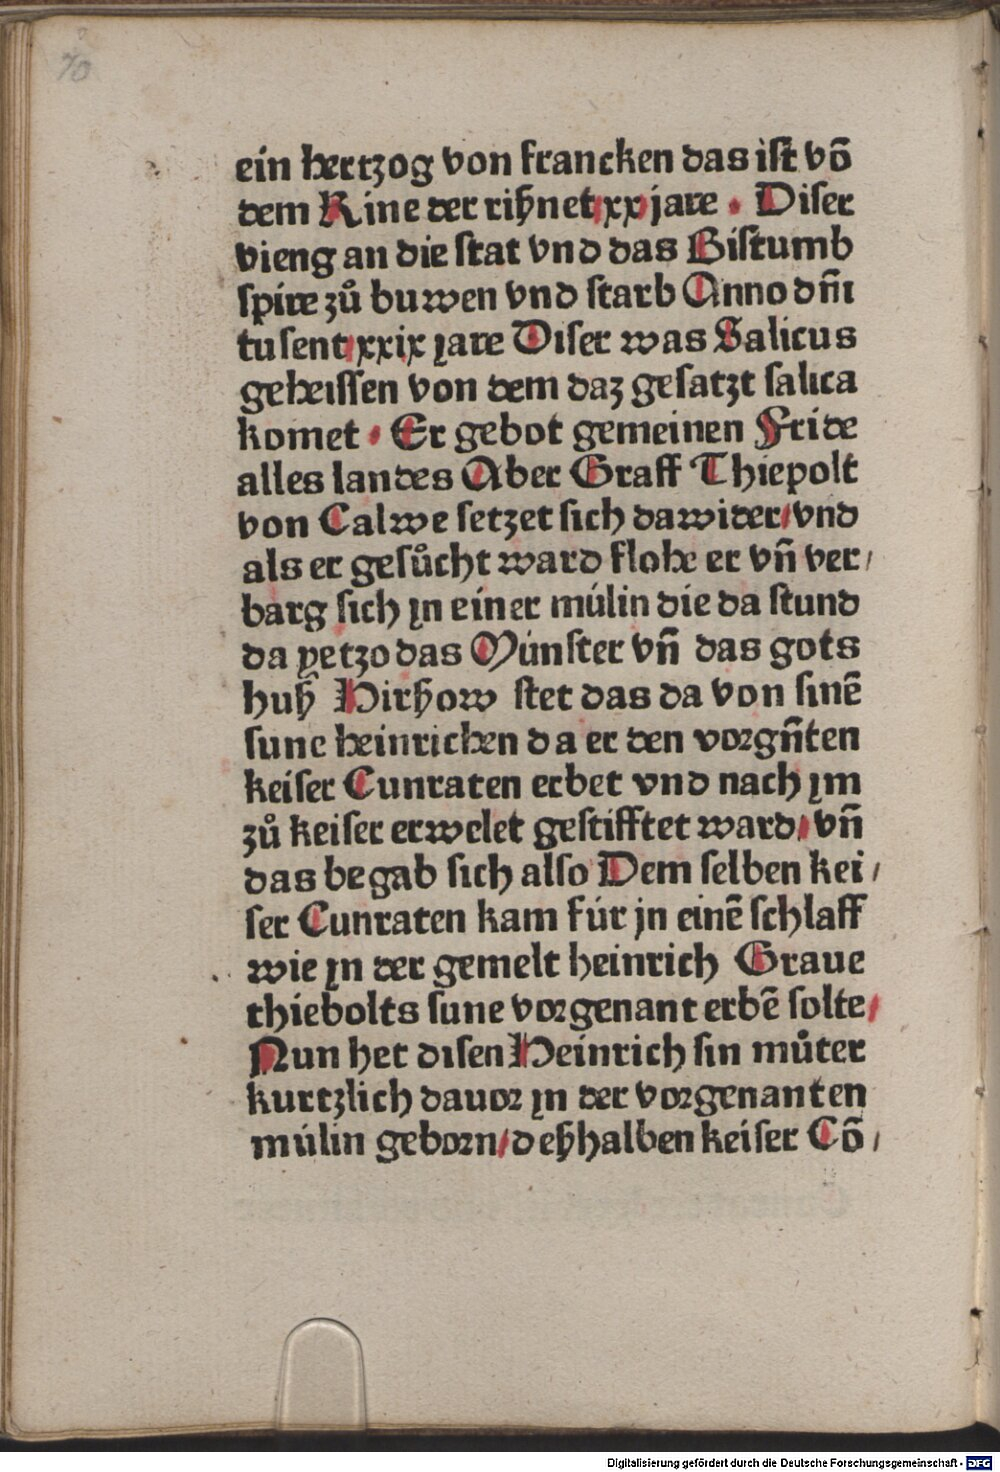 70
ein hertzog von francken das ist võ
dem Rine der rißnet/xx/jare . Diser
vieng an die stat vnd das Bistumb
spire zů buwen vnd starb Anno dñi
tusent/xxix ȷare Diser was Salicus
geheissen von dem daz gesatzt salica
komet . Er gebot gemeinen Fride
alles landes Aber Graff Thiepolt
von Calwe setzet sich dawider/vnd
als er gesůcht ward flohe er vñ ver/
barg sich ȷn einer múlin die da stund
da yetzo das Múnster vñ das gots
huß Hirßow stet das da von sinẽ
sune heinrichen da er den vorgñten
keiser Cunraten erbet vnd nach ȷm
zů keiser erwelet gestifftet ward/ vñ
das begab sich also Dem selben kei/
ser Cunraten kam fúr jn einẽ schlaff
wie ȷn der gemelt heinrich Graue
thiebolts sune vorgenant erbẽ solte/
Nun het disen Heinrich sin můter
kurtzlich dauor ȷn der vorgenanten
múlin geborn/deßhalben keiser Cõ/
Digitalisierung gefördert durch die Deutsche Forschungsgemeinschaft - DFG